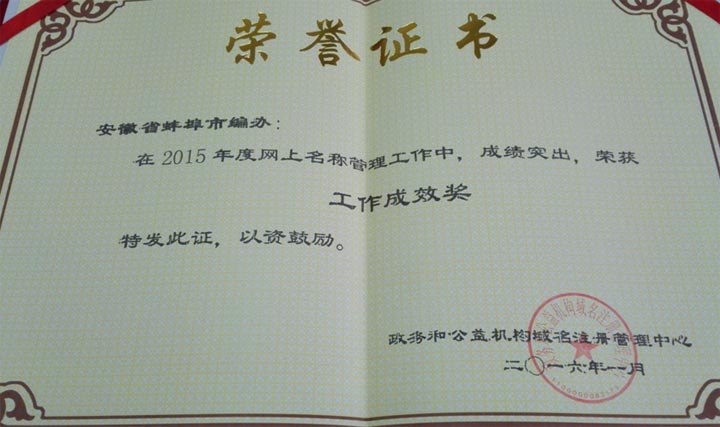 荣誉证书
安徽省蚌埠市编办：
在2015年度网上名称管理工作中，成绩突出，荣获
工作成效奖
特发此证，以资鼓励。
政务和公益机构域名注册管理中心
二〇一六年一月